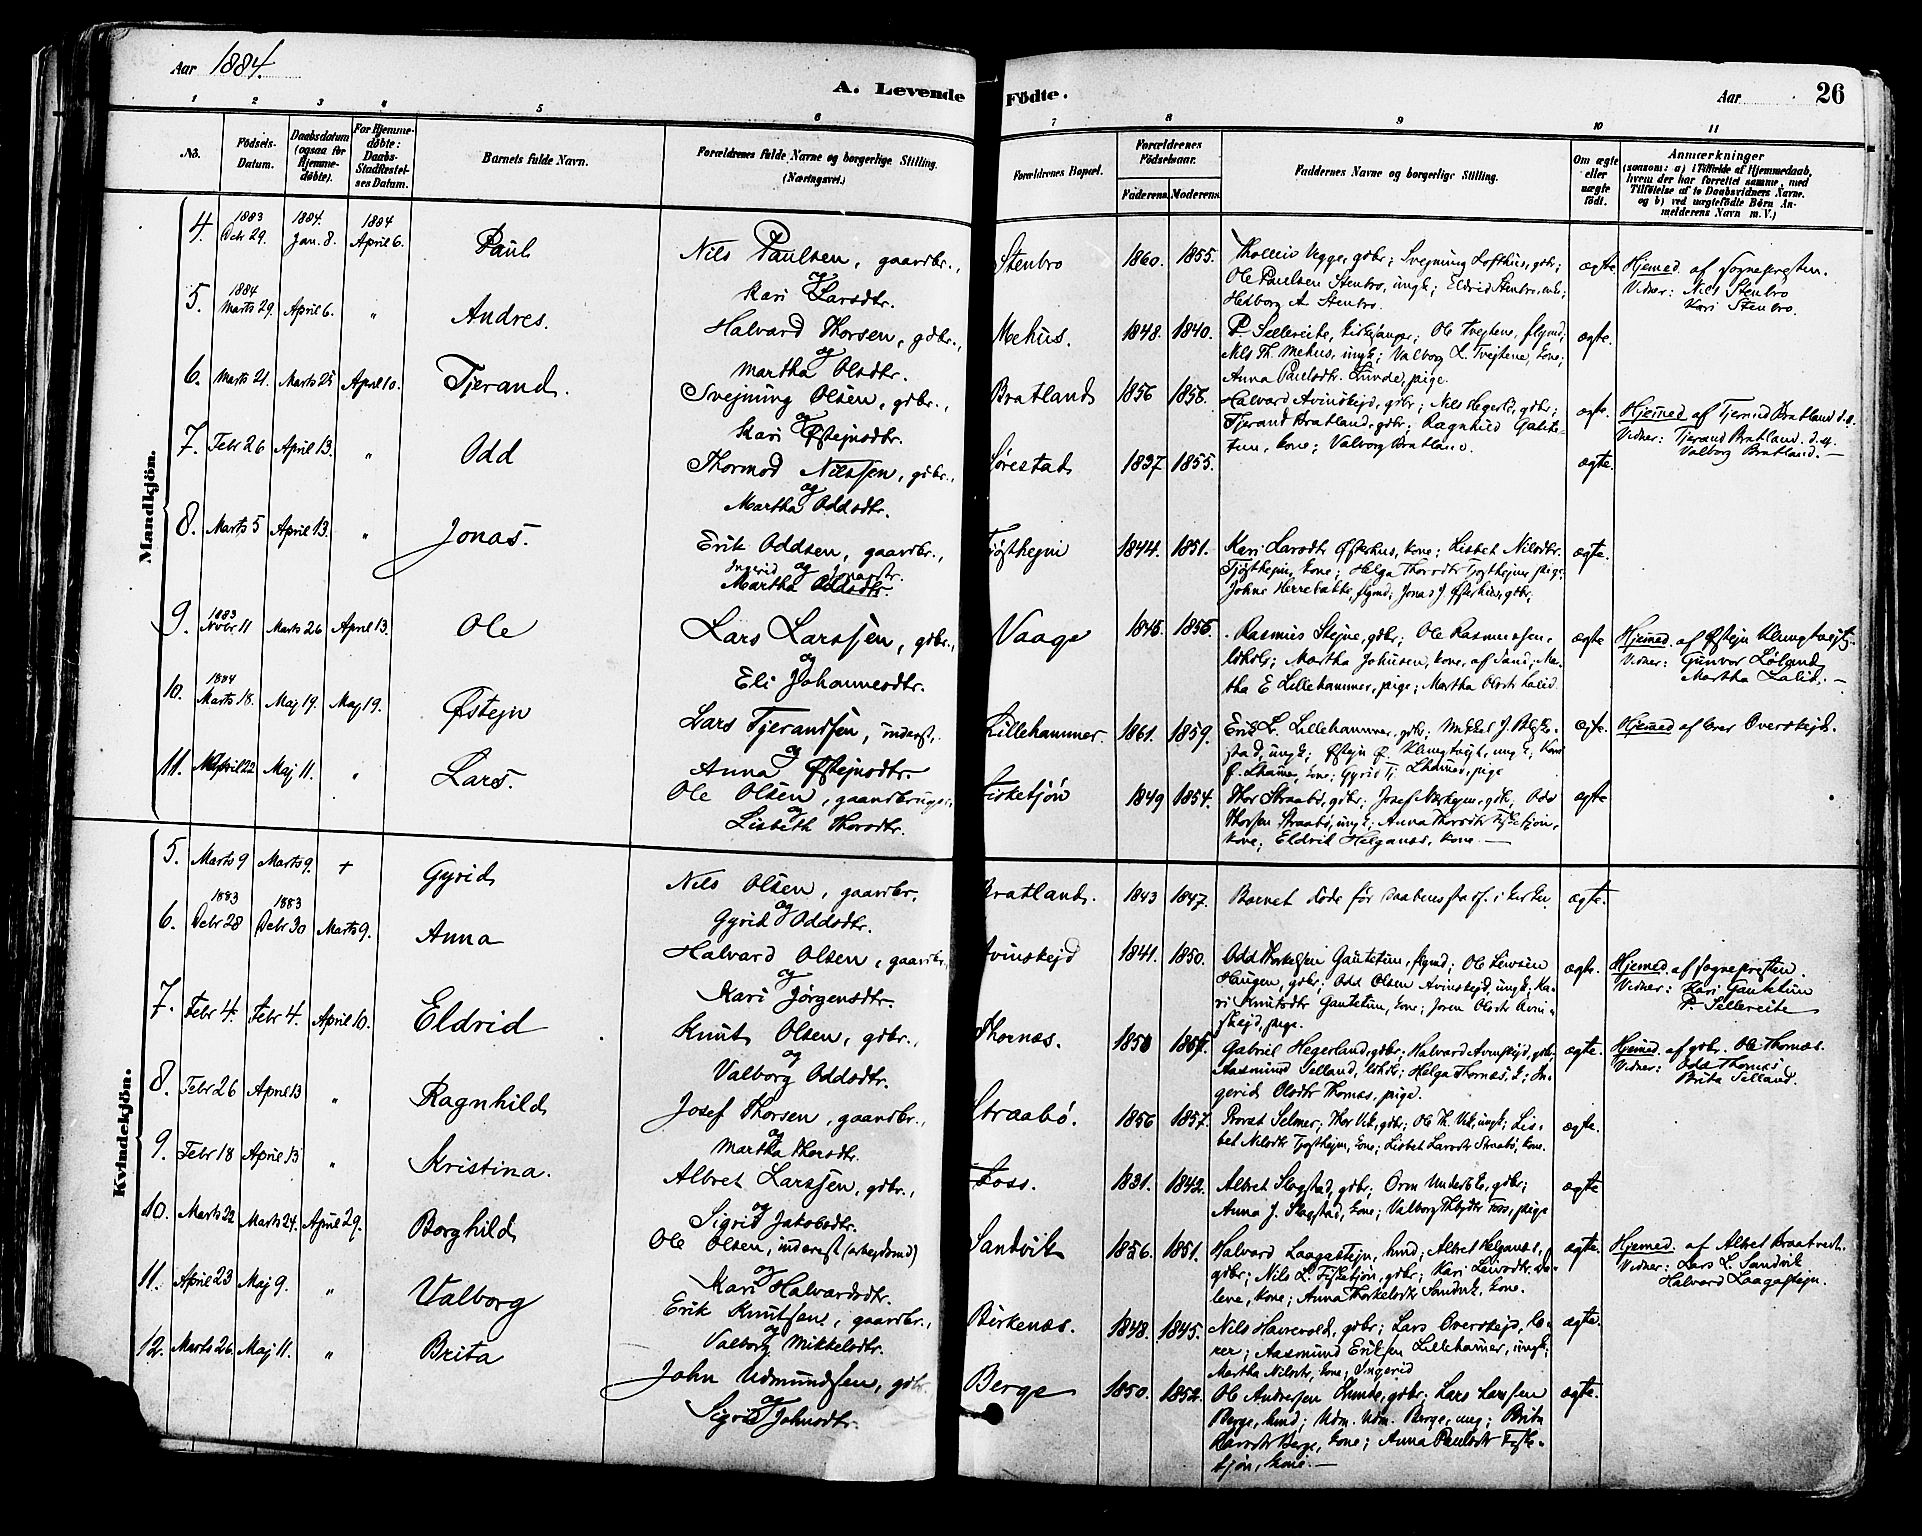 Aar 1884.
A. Levende Födte.
Aar
26
1
2
3
4
5
6
7
8
9
10
11
No.
Födsels-Datum.
Daabsdatum (ogsaa for Hjemmedöbte).
For Hjemmedöbte: Daabs-Stadfæstelses Datum.
Barnets fulde Navn.
Forældrenes fulde Navne og borgerlige Stilling.
(Næringsvei.)
Forældrenes Bopæl.
Forældrenes Födselsaar.
Faderens.
Moderens.
Faddernes Navne og borgerlige Stilling.
Om ægte eller uægte födt.
Anmærkninger
(saasom: a) i Tilfælde af Hjemmedaab,
hvem der har forrettet samme, med
Tilföielse af to Daabsvidners Navne.
og b) ved uægtefödte Börn Anmelderens Navn m. V.)
Mandkjön.
4. 1883 Dcbr 29. 1884. Jan. 8. 1884 April 6. Paul
Nils Paulsen, gaardbr.,
og
Kari Larsdtr.
Stenbro 1860. 1855.
Tholleiv Vegge, gdbr; Svejning Lofthus, gdbr;
Ole Paulsen Stenbro, ungk; Eldrid Stenbro, enke;
Helborg A Stenbro.
ægte
Hjemed. af sognepresten.
Vidner: Nils Stenbro
Kari Stenbro.
5. 1884 Marts 29. April 6. " Andres.
Halvard Thorsen, gdbr.,
og
Martha Olsdtr.
Mehus. 1848. 1840.
P Sellereite, kirkesanger; Ole Tvejtene, flgmd;
Nils Th. Mehus, ungk; Valborg L. Tvejtene, kone;
Anna Paulsdtr. Lunde, pige.
ægte.
6. Marts 21. Marts 25 April 10. Tjerand.
Svejning Olsen, gdbr.,
og
Kari Østejnsdtr.
Bratland 1856 1858.
Halvard Avinskejd, gdbr; Nils Hegerld, gdbr;
Tjerand Bratland, gdbr; Ragnhild Gautetun, kone; Valborg Bratland.
ægte.
Hjemed af Tjerand Bratland d.e.
Vidner: Tjerand Bratland. d.y.
Valborg Bratland. —
7. Febr 26 April 13. " Odd
Thormod Nilssen, gdbr.,
og
Martha Oddsdtr.
Sørestad 1837 1855.
ægte.
8. Marts 5 April 13. " Jonas.
Erik Oddsen, gaardbr.,
Ingerid og Jonasdtr.
Martha Oddsdtr.
Tjøsthejm 1844. 1851.
Kari Larsdtr Østerhus, kone; Lisbet Nilsdtr.
Tjøsthejm, kone; Helga Thorsdtr Tjøsthejm pige.
Johne Herrebakke, flgmd; Jonas J. Østerhus, gdbr.
ægte.
9. 1883 Novbr 11 Marts 26 April 13. Ole
Lars Larssen, gdbr.,
og
Eli Johannesdtr.
Vaage 1845. 1856.
Rasmus Stejne, gdbr; Ole Rasmussen,
Martha Johnsen, kone, af Sand; Martha E Lillehammer, pige; Martha Olsdtr Lalid.
ægte
Hjemed. af Østejn Klungtvejt;
Vidner: Gunvor Løland
Martha Lalid. —
10. 1884 Marts 18. Maj 19. Maj 19. Østejn
Lars Tjerandsen, inderst,
og
Anna Østejnsdtr.
Lillehammer. 1861. 1859.
Erik L. Lillehammer, gdbr; Mikkel J.
ungk; Østejn Ø. Klungtvejt, ungk; Kari
Ø. Lhamer, kone; Gyrid Tj. Lhamer, pige
ægte.
Hjemed af Lars Overskejd.
11. April 22 Maj 11. " Lars.
Ole Olsen, gaardbruger,
og
Lisbeth Thorsdtr.
Fisketjön 1849 1854.
Thor Straabø, gdbr; Josef gdbr; Odd
Thorsen Straabø, ungk; Anna Thorsdtr Fisketjön,
kone; Eldrid Helganes, kone. —
ægte
Kvindekjön.
5. Marts 9 Marts 9. + Gyrid
Nils Olsen, gaardbr,
og
Gyrid Oddsdtr.
Bratland. 1843 1847.
Barnet døde før Daabens stadf. i kirken.
ægte.
6. 1883 Dcbr 28 1883 Dcbr 30 Marts 9. Anna
Halvard Olsen, gaardbr.
og
Kari Jörgensdtr.
Avinskejd 1841. 1850.
Odd Thorkelsen Gautetun, flgmd; Ole Larsen
Haugen, gdbr; Odd Olsen Avinskejd, ungk; Kari Knutsdtr Gautetun, kone; Joren Olsdtr Avinskejd, pige.
ægte.
Hjemed. af sognepresten.
Vidner: Kari Gautetun
P. Sellereite
7. Febr 4. Febr 4. April 10. Eldrid
Knut Olsen, gdbr.,
og
Valborg Oddsdtr.
Thornæs. 1850 1857.
Gabriel Hegerland, gdbr; Halvard Avinskejd, gdbr,
Aasmund Selland, Helga Thornæs, k; Ingerid Olsdtr Thornæs, pige.
ægte.
Hjemed. af gdbr. Ole Thornæs.
Vidner: Odd Thornæs
Brita Selland.
8. Febr 26 April 13 " Ragnhild
Josef Thorsen, gaardbr.,
og
Martha Thorsdtr.
Straabø. 1856 1857.
Provst Selmer; Thor Vik, gdbr; Ole Th. Vik, ungk; Lisbet Nilsdtr Tjøsthejm, kone; Lisbet Larsdtr Straabø, kone.
ægte.
9. Febr 18 April 13 " Kristina.
Albret Larssen, gdbr.,
og
Sigrid Jakobsdtr.
Foss. 1831. 1842.
Albret Slogstad, gdbr; Orm Underbk, gdbr;
Anna J. Slogstad, kone; Valborg Foss, pige
ægte
10. Marts 22 Marts 24. April 29. Borghild
Ole Olsen, inderst (arbejdsmd)
og
Kari Halvardsdtr.
Sandvik 1856. 1851.
Halvard Laagastejn, hmd; Albret Helganes,
gdbr; Nils L. Fisketjön, gdbr; Kari
kone; Anna Thorkelsdtr Sandvik, kone.
ægte.
Hjemed. af Albret Braatveit.
Vidner: Lars L. Sandvik
Halvard Laagastejn.
11. April 23 Maj 9. " Valborg
Erik Knutsen, gaardbr.,
og
Valborg Mikkelsdtr.
Birkenæs. 1848. 1845.
Nils Hairevold, gdbr; Lars Overskejd, Lærer; Aasmund Eriksen Lillehamer, ungk;
Martha Nilsdtr, kone; Ingerid
ægte.
12. Marts 26. Maj 11. " Brita
John Udmundsen, gdbr.
og
Sigrid Johnsdtr.
Berge 1850. 1852.
Ole Andersen Lunde, gdbr; Lars Larssen
Berge, hmd; Udm. Udm. Berge, ung; Brita
Larsdtr Berge, kone; Anna Paulsdtr Fisketjön, kone. —
ægte.